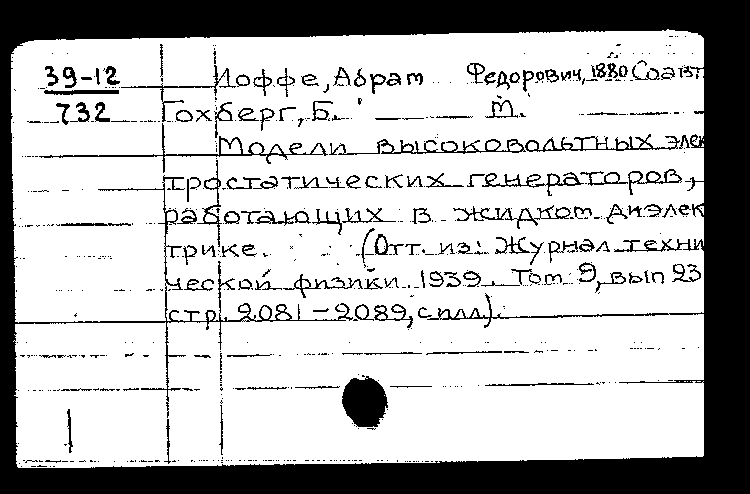 39-12 Иоффе, Абрам Федорович, 1880 Соавт
732 Гохберг, Б. М.
Модели высоковольтных элек
тростатических генераторов,
работающих в жидком диэлек
трике. (Отт. из: Журнал техни
ческой физики 1939. Том 9, вып 23
стр. 2081-2089, с илл).